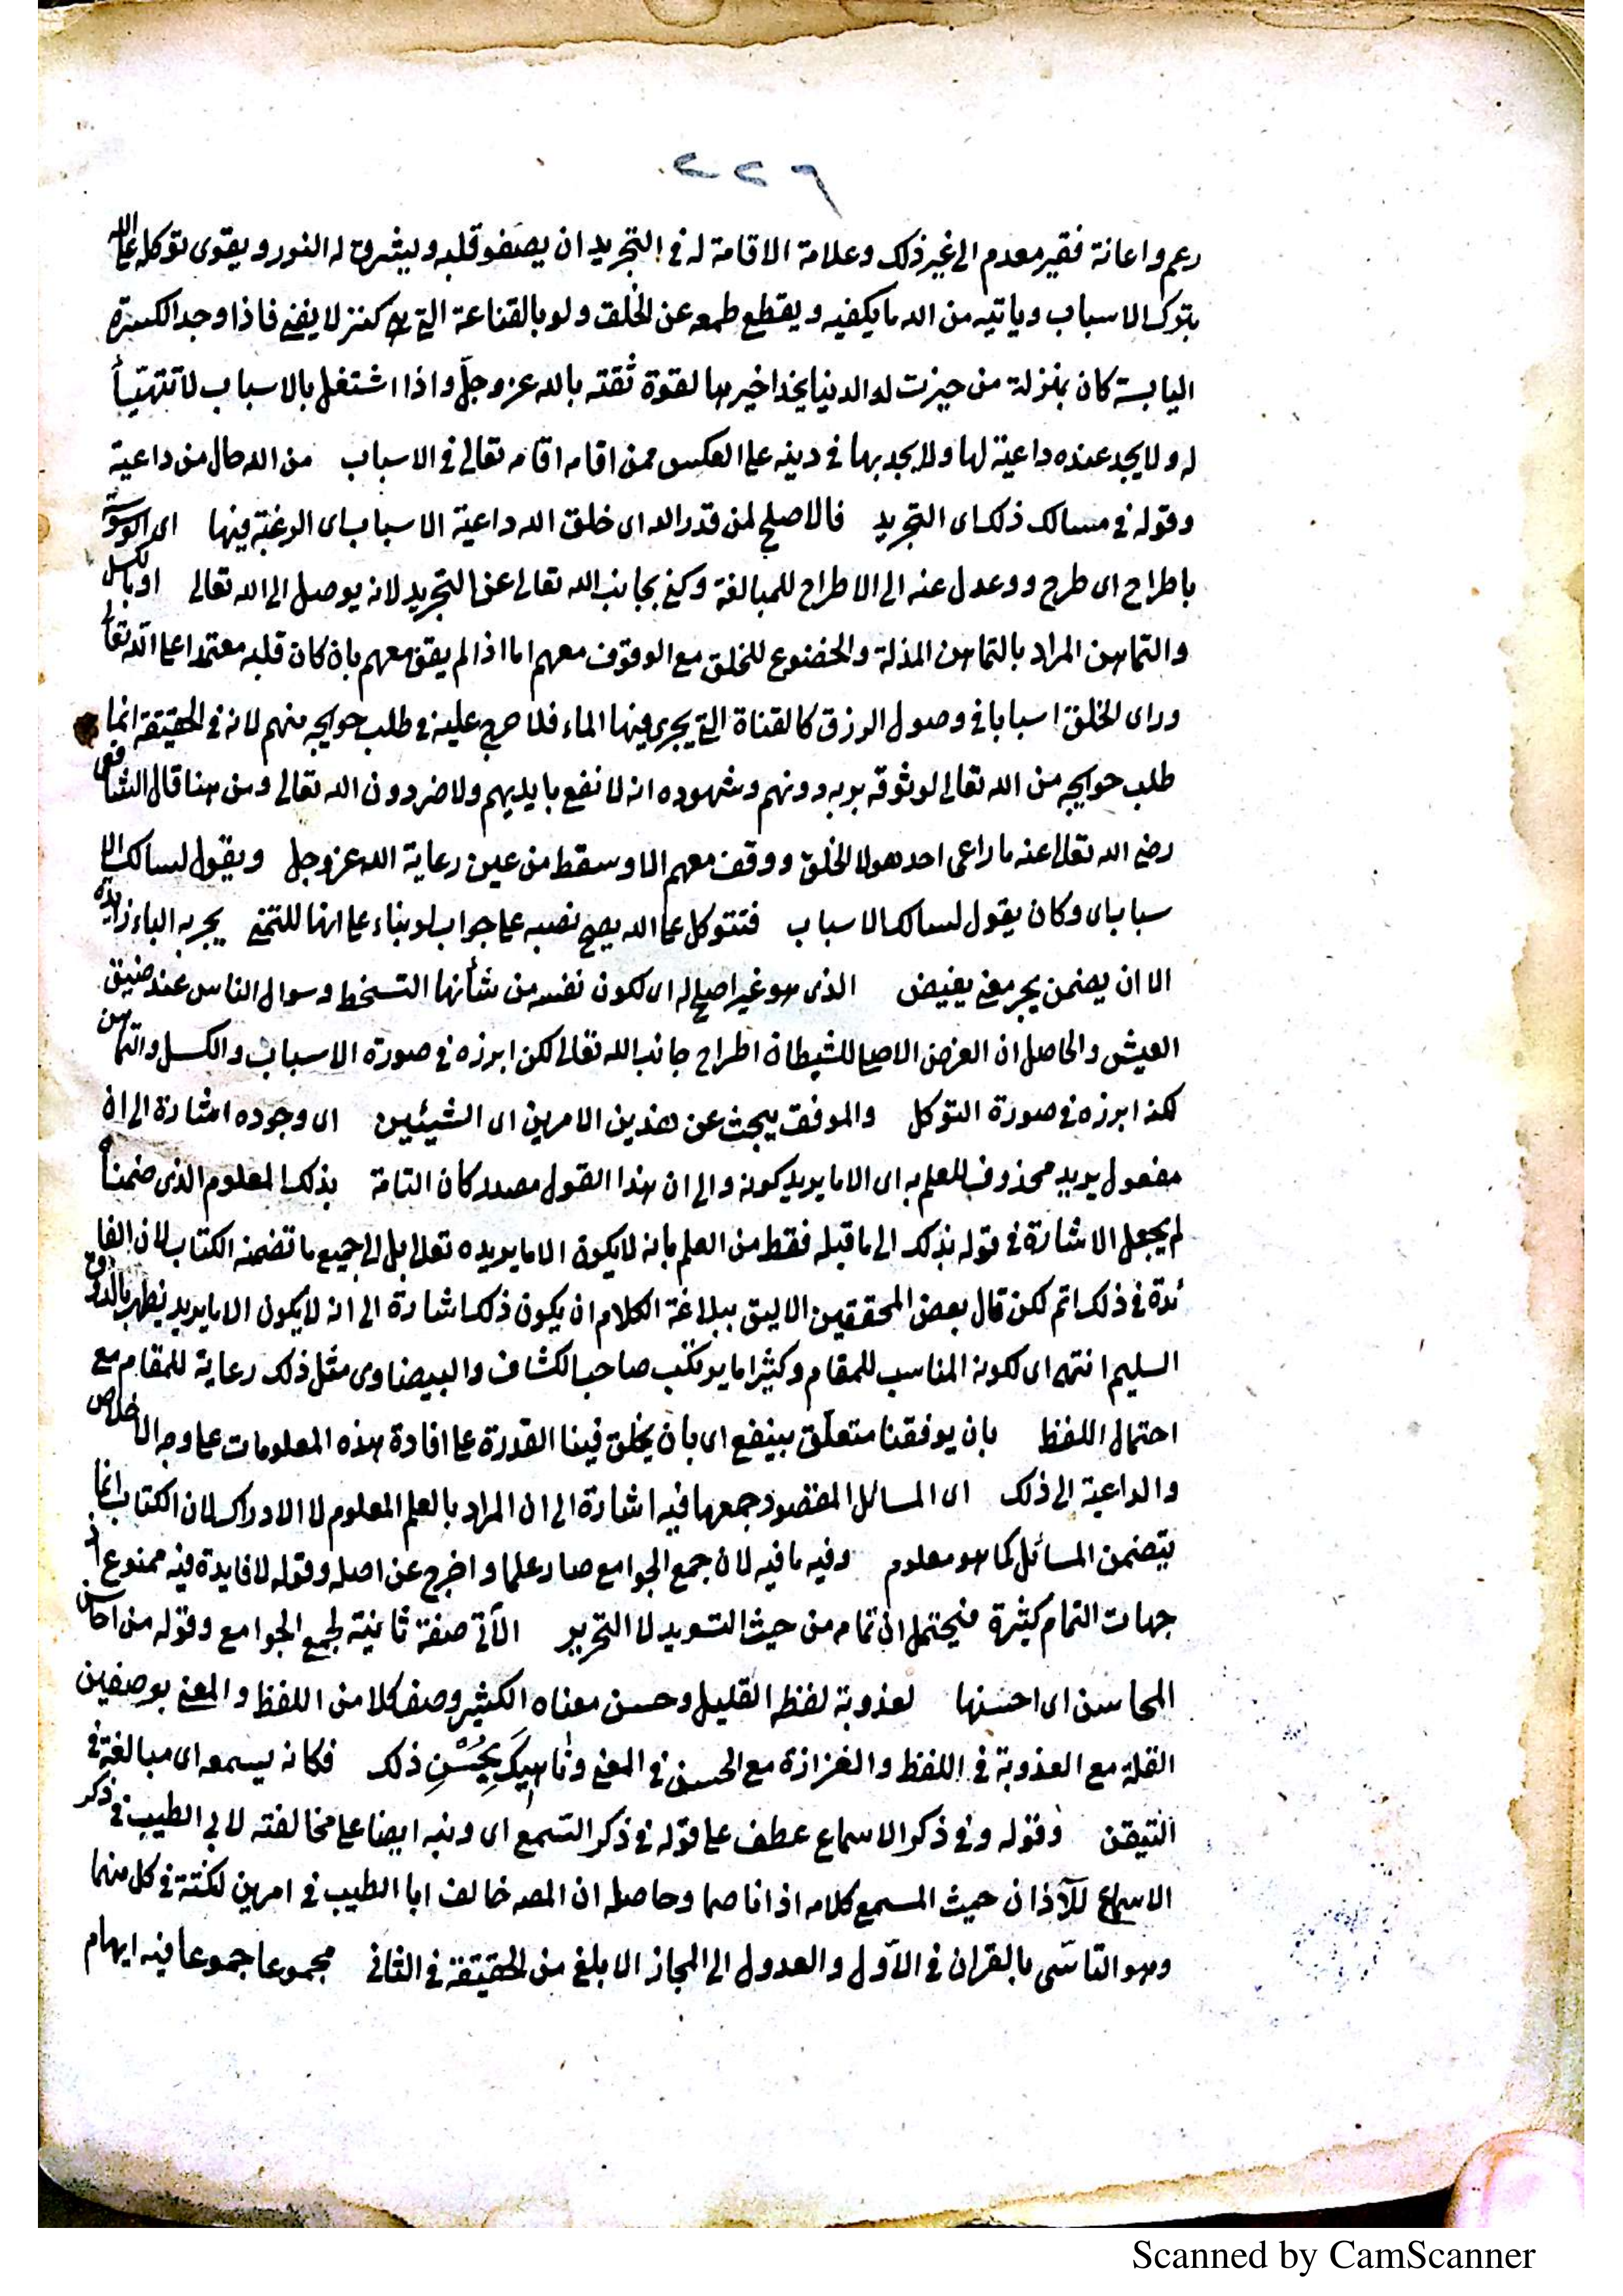 ٢٢٦
رعم واعانة فقير معدم الى غير ذلك وعلامة الاقامة له فى التجريد ان يصفو قلبه ويشرق له النور ويقوى توكله على الله
بترك الاسباب وياتيه من الله ما يكفيه ويقطع طمعه عن الخلق ولو بالقناعة التى هى كنز لا يفنى فاذا وجد الكسرة
اليابسة كان بمنزلة من حيزت له الدنيا بحذافيرها لقوة ثقته بالله عز وجلّ واذا اشتغل بالاسباب لا تتهيّأ
له ولا يجد عنده داعية لها ولا يجد بها فى دينه على العكس ممن اقامه اقامه تعالى فى الاسباب من الله حال من داعية
وقوله فى مسالك ذلك اى التجريد فالاصلح لمن قدر الله اى خلق الله داعية الاسباب اى الرغبة فيها اى الوسوسة
باطراح اى طرح ووعدل عنه الى الاطراح للمبالغة وكنى بجانب الله تعالى عن التجريد لانه يوصل الى الله تعالى او بالكسل
والتماهن المراد بالتماهن المذلة والخضوع للخلق مع الوقوف معهم اما اذا لم يقف معهم بان كان قلبه معتمدا على الله تعالى
وراى الخلق اسبابا فى وصول الرزق كالقناة التى يجرى فيها الماء فلا حرج عليه فى طلب حوايجه منهم لانه فى الحقيقة انما
طلب حوايجه من الله تعالى لوثوقه به دونهم وشهوده انه لا نفع بايديهم ولا ضر دون الله تعالى ومن هنا قال الشافعى
رضى الله تعالى عنه ما راعى احد هولا الخلق ووقف معهم الا وسقط من عين رعاية الله عز وجل ويقول لسالك الا
سباب اى وكان يقول لسالك الاسباب فتتوكل على الله يصح نصبه على جواب لو بناء على انها للتمنى يجر به الباء زايدة
الا ان يضمن يجر معنى يفيض الذى هو غير اصلح له اى لكون نفسه من شأنها التسخط وسوال الناس عند ضيق
العيش والحاصل ان الغرض الاصلى للشيطان اطراح جانب الله تعالى لكن ابرزه فى صورة الاسباب والكسل والتماهن
لكنه ابرزه فى صورة التوكل والموفق يبحث عن هذين الامرين اى الشيئين اى وجوده اشارة الى ان
مفعول يريد محذوف للعلم به اى الا ما يريد كونه والى ان هذا القول مصدر كان التامة بذلك المعلوم الذى ضمنا
لم يجعل الاشارة فى قوله بذلك الى ما قبله فقط من العلم بانه لا يكون الا ما يريده تعالى بل الى جميع ما تضمنه الكتاب لان الفا
ئدة فى ذلك اتم لكن قال بعض المحققين الاليق ببلاغة الكلام ان يكون ذلك اشارة الى انه لا يكون الا ما يريد يظهر بالذوق
السليم انتهى اى لكونه المناسب للمقام وكثيرا ما يرتكب صاحب الكشاف والبيضاوى مثل ذلك رعاية للمقام مع
احتمال اللفظ بان يوفقنا متعلّق بينفع اى بان يخلق فينا القدرة على افادة هذه المعلومات على وجه الاخلاص
والداعية الى ذلك اى المسائل المقصود جمعها فيه اشارة الى ان المراد بالعلم المعلوم لا الادراك لان الكتاب انما
يتضمن المسائل كما هو معلوم وفيه ما فيه لان جمع الجوامع صار علما واخرج عن اصله وقوله لا فايدة فيه ممنوع اذ
جهات التمام كثيرة فيحتمل ان تمامه من حيث التسويد لا التحرير الآتى صفة ثانية لجمع الجوامع وقوله من احاسن
المحاسن اى احسنها لعذوبة لفظه القليل وحسن معناه الكثير وصف كلا من اللفظ والمعنى بوصفين
القلة مع العذوبة فى اللفظ والغزازة مع الحسن فى المعنى وناهيك بحُسْنِ ذلك فكانه يسمعه اى مبالغة فى
التيقن وقوله وفى ذكر الاسماع عطف على قوله فى ذكر التسمع اى ونبه ايضا على مخالفته لابى الطيب فى ذكر
الاسماع للآذان حيث المسمع كلامه اذانا صما وحاصله ان المصـ خالف ابا الطيب فى امرين لنكتة فى كل منهما
وهو التاسّى بالقران فى الاوّل والعدول الى المجاز الابلغ من الحقيقة فى الثانى مجموعا جموعا فيه ايهام
Scanned by CamScanner